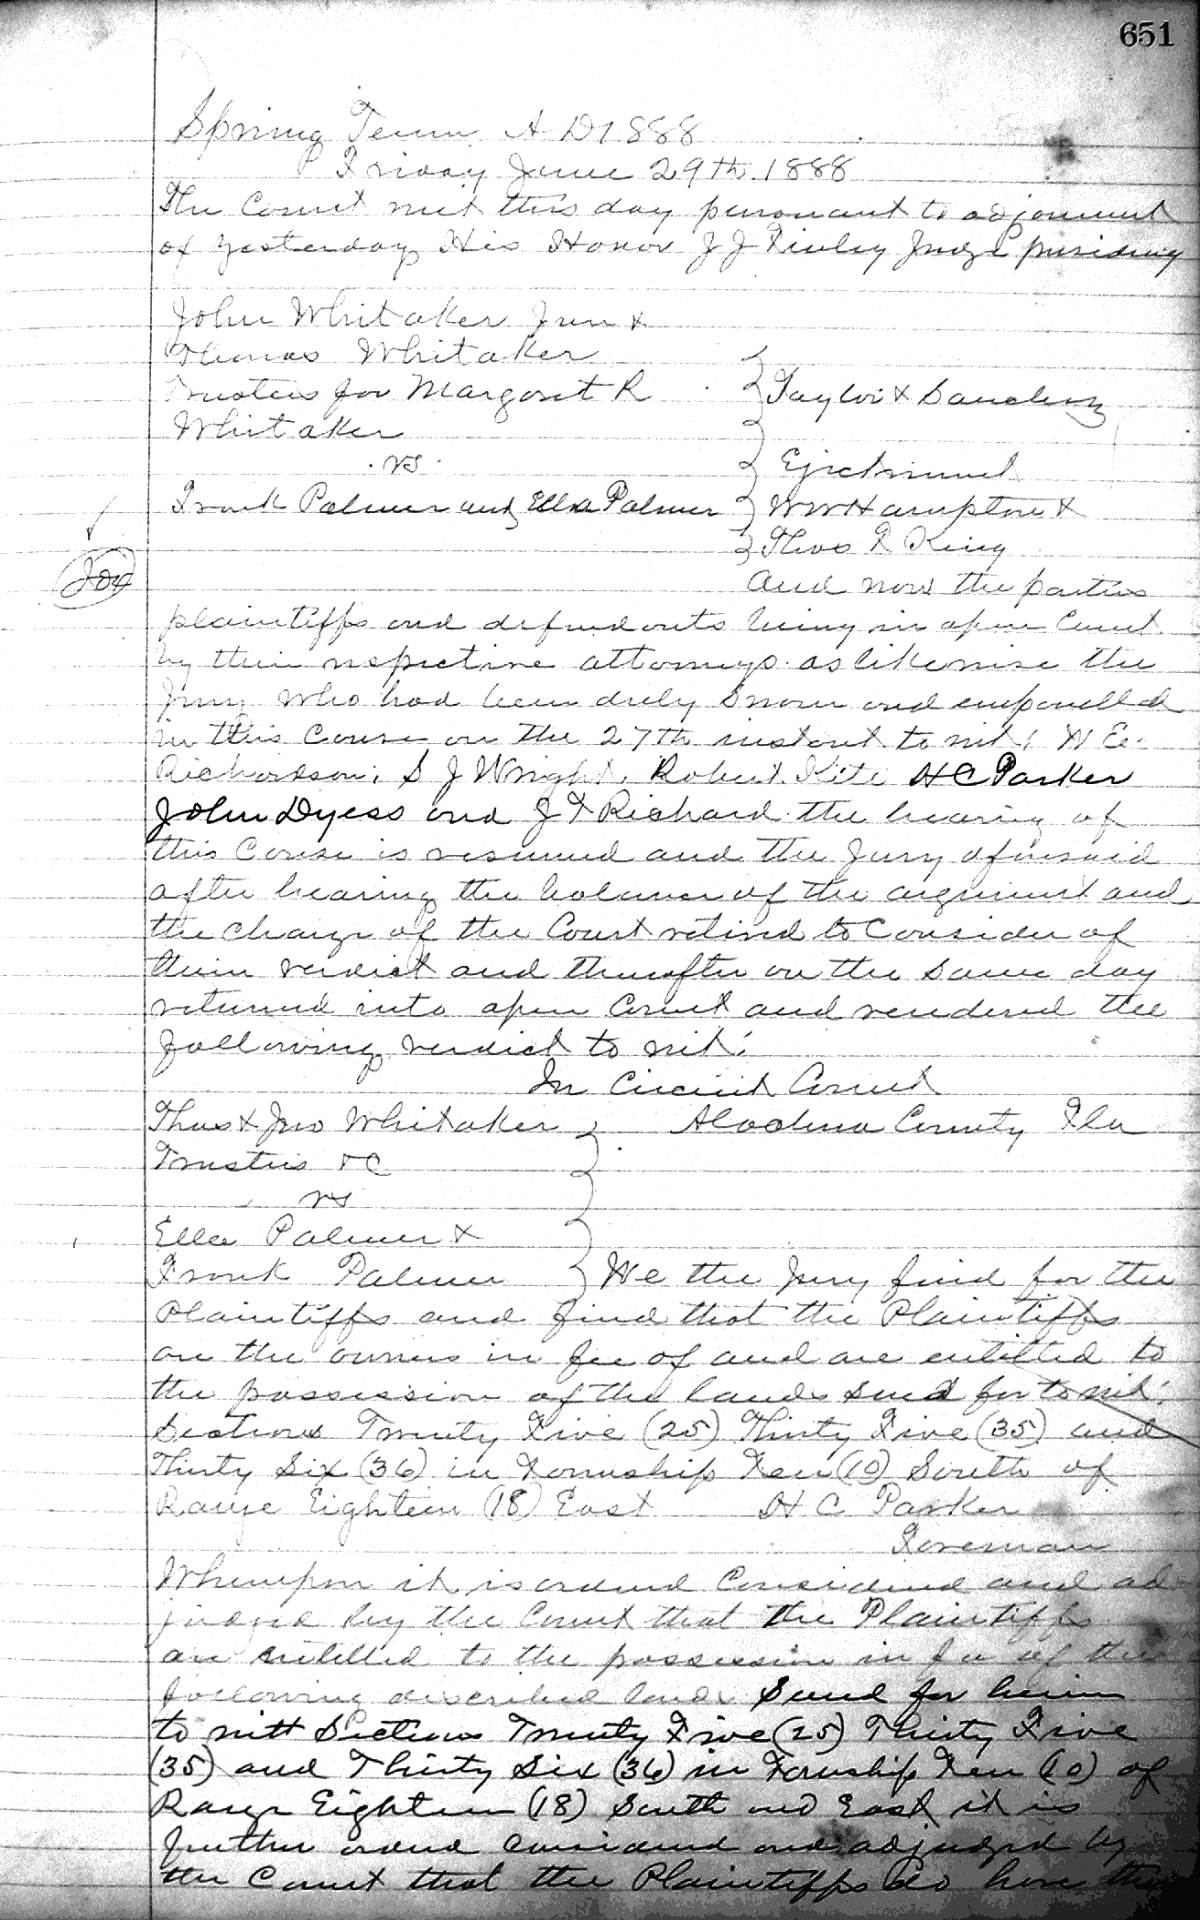 651
Spring Term A D 1888
Friday June 29th 1888
The Court met this day pursuant to adjournment
of yesterday His Honor J J Finley Judge presiding
John Whitaker Jun &
Thomas Whitaker
Trustees for Margaret R
Taylor & Sanchez
Whitaker
vs
Ejectment
Frank Palmer and Ella Palmer
W W Hampton &
Thos F King
And now the parties
plaintiffs and defendants being in open Court
by their respective attorneys as likewise the
Jury who had been duly Sworn and empanelled
in this Cause on the 27th instant to wit: W E
Richardson, S J Wright, Robert Kite H C Parker
John Dyess and J F Richard the hearing of
this Cause is resumed and the Jury aforesaid
after hearing the balance of the argument and
the charge of the Court retired to Consider of
their verdict and thereafter on the same day
returned into open Court and rendered the
following verdict to wit:
In Circuit Court
Thos & Jno Whitaker
Alachua County Fla
Trustees &C
vs
Ella Palmer &
Frank Palmer
We the Jury find for the
Plaintiffs and find that the Plaintiffs
are the owners in fee of and are entitled to
the possession of the lands sued for to wit:
Sections Twenty Five (25) Thirty Five (35) and
Thirty Six (36) in Township Ten (10) South of
Range Eighteen (18) East
H C Parker
Foreman
Whereupon it is ordered Considered and ad
judged by the Court that the Plaintiffs
are entitled to the possession in fee of the
following described lands Sued for herein
to witt Sections Twenty Five (25) Thirty Five
(35) and Thirty Six (36) in Township Ten (10) of
Range Eighteen (18) South and East it is
further ordered considered and adjudged by
the Court that the Plaintiffs do have the